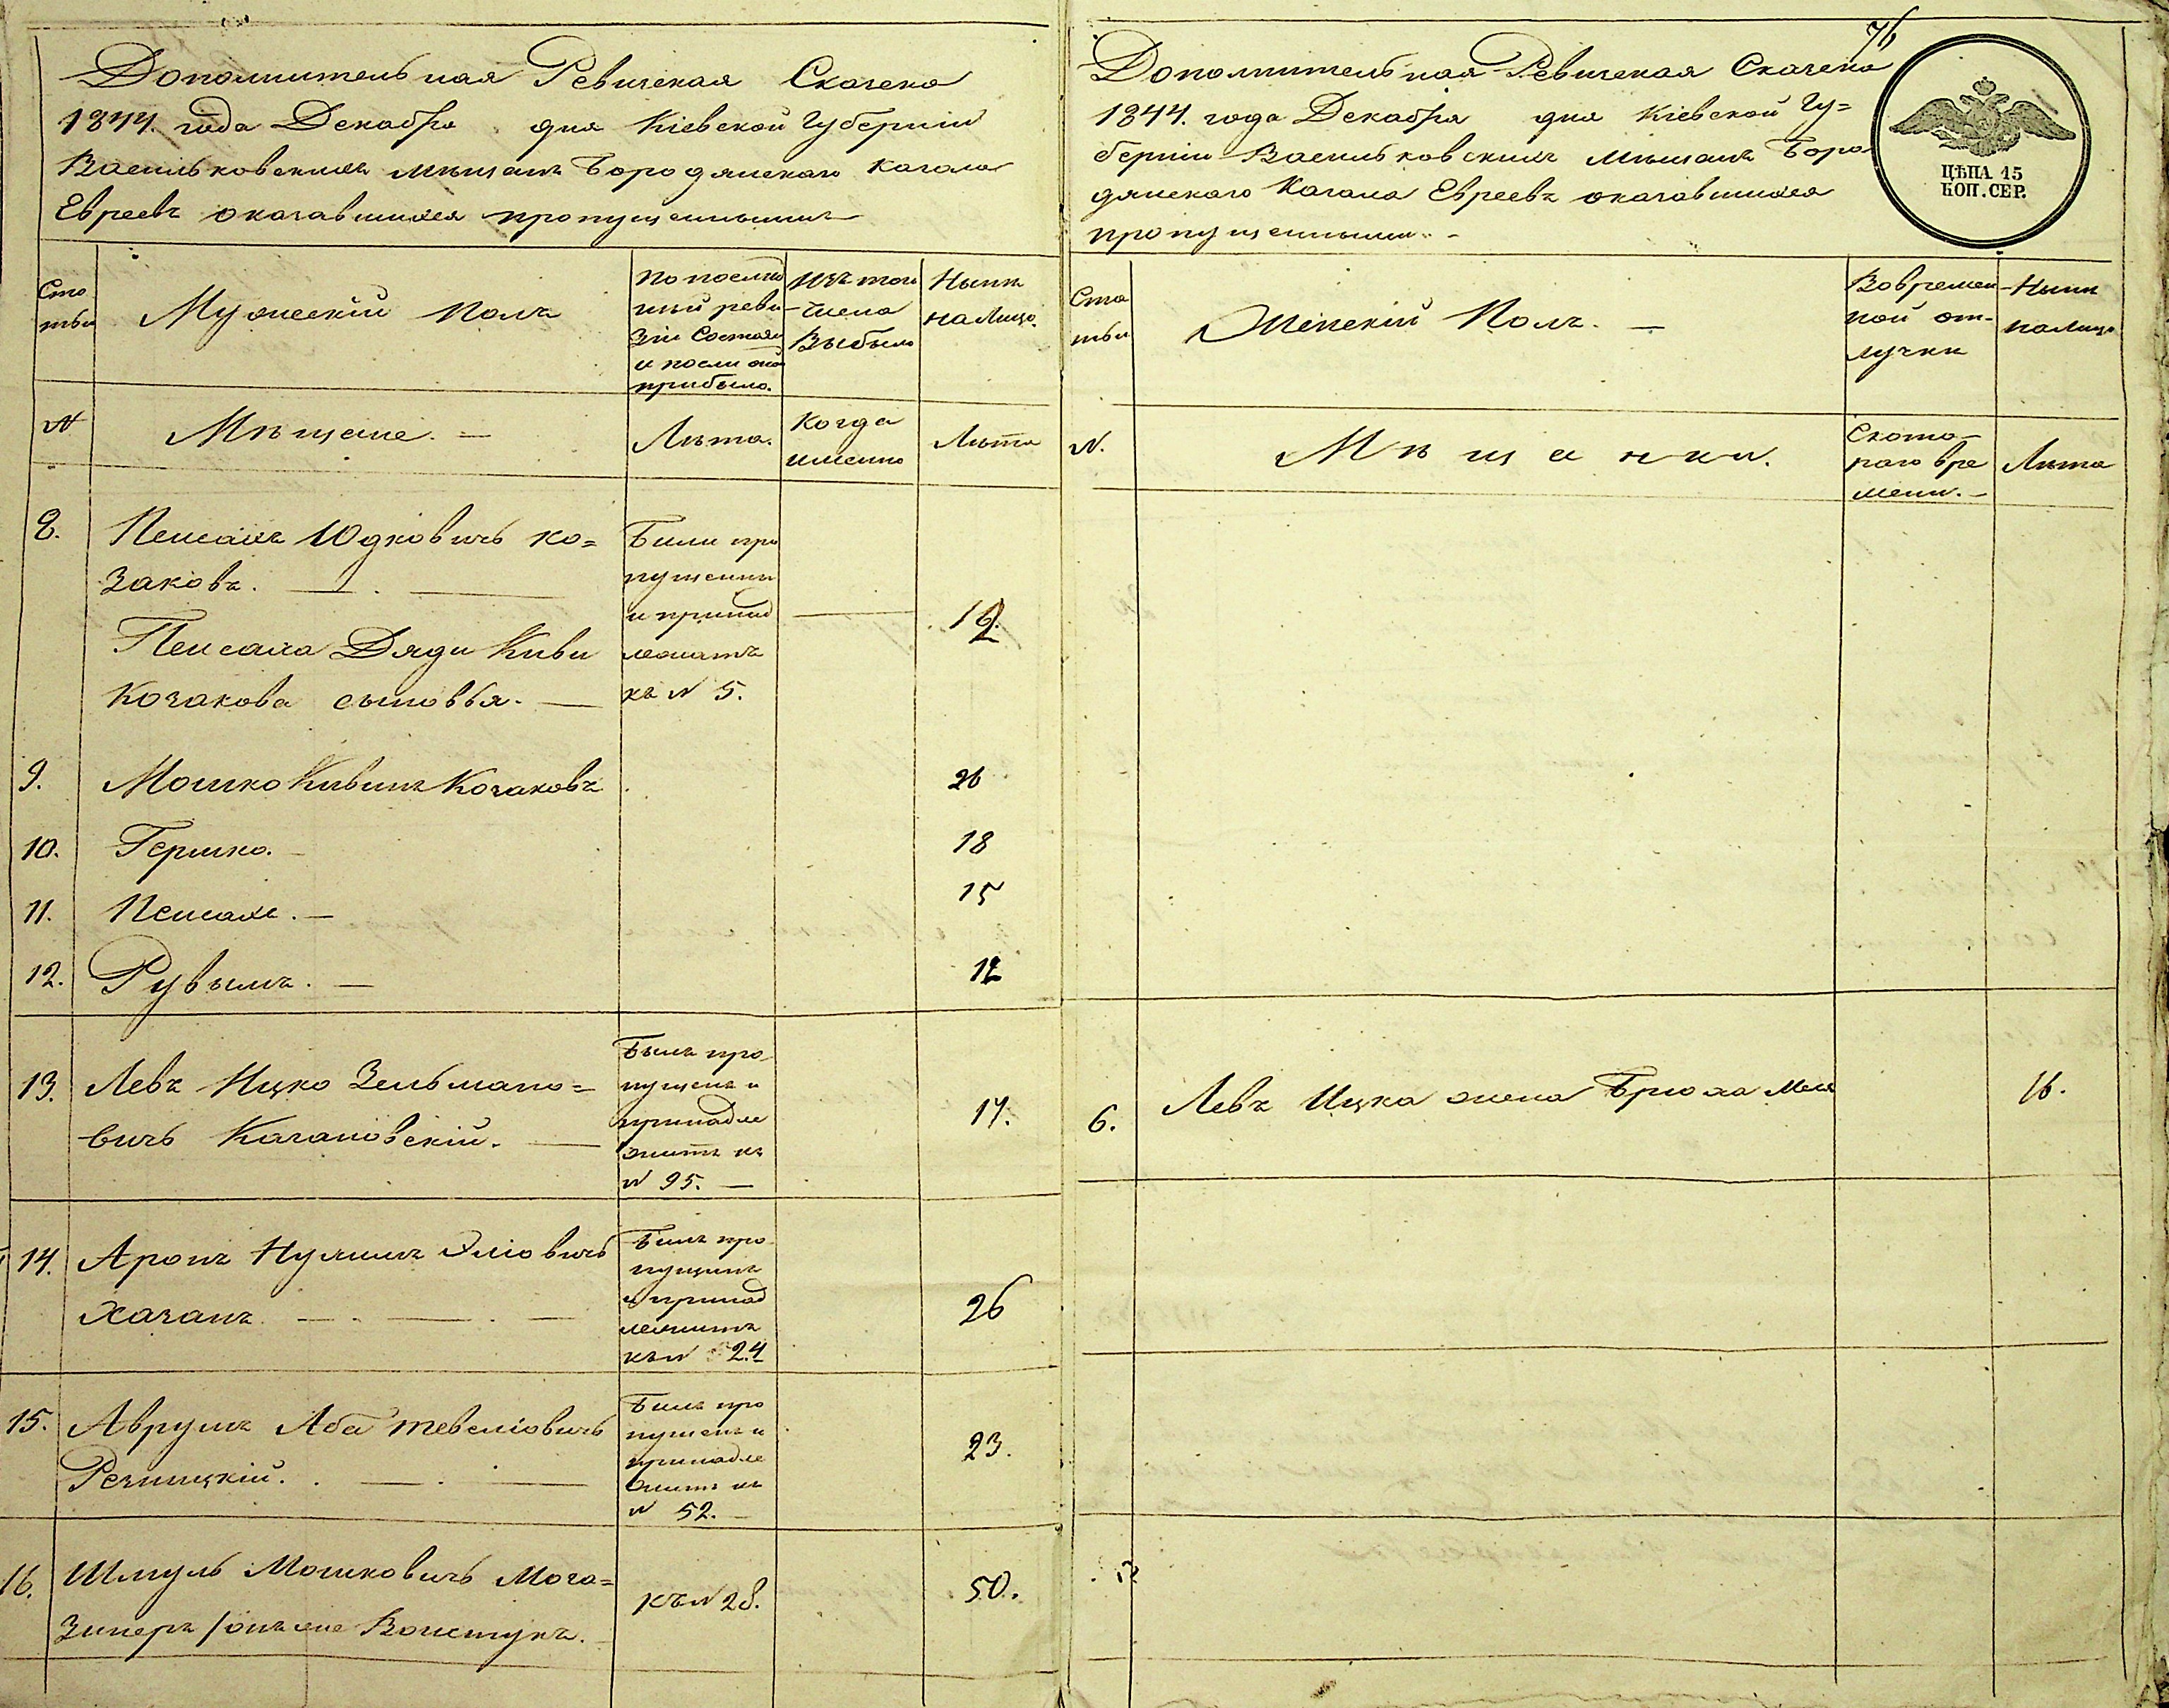 Дополнительная Ревизская Сказска
1844. года Декабря дня Кіевской Губерніи
Васильковскихъ мѣщанъ Бородянскаго Кагала
Евреевъ оказавшихся пропущенными
Ста
тьи
Мужескій Полъ
По послѣд
ней реви
зіи Состояло
и послѣ оной
прибыло.
Изъ того
числа
Выбыло
Нынѣ
на Лицо.
№
Мѣщане. —
Лѣта.
Когда
именно
Лѣта
8.
Пейсахъ Юдковичъ Ко=
заковъ.
Пейсаха Дяди Киви
Козакова сыновья. —
Были про
пущенны
и принад
лежатъ
къ № 5.
12.
9.
Мошко Кивинъ Козаковъ
26
10.
Гершко. —
18
11.
Пейсахъ. —
15
12.
Рувымъ. —
12
13.
Левъ Ицко Зельмано=
вичъ Кагановскій. —
Былъ про
пущенъ и
принадле
житъ къ
№ 95. —
17.
14.
Аронъ Нухимъ Эліовичъ
Хазанъ
Былъ про
пущенъ
и принад
лежитъ
къ № 24
26
15.
Аврумъ Аба Тевеліовичъ
Резницкій.
Былъ про
пущенъ и
принадле
житъ къ
№ 52. —
23.
16.
Шмуль Мошковичъ Мога=
Зинеръ /онъ же Воистукъ.
къ № 28.
50.
76
Дополнительная Ревизская Сказска
1844. года Декабря дня Кіевской Гу=
берніи Васильковскихъ мѣщанъ Боро
дянскаго Кагала Евреевъ оказавшихся
пропущенными. -
ЦѢНА 15
КОП. СЕР.
Ста
тьи
Женскій Полъ. —
Во времен
ной от-
лучкѣ
Нынѣ
на лицо
№.
Мѣщанки.
Съ кото-
раго вре
мени. —
Лѣта
6.
Левъ Ицка жена Брюха Меля
16.